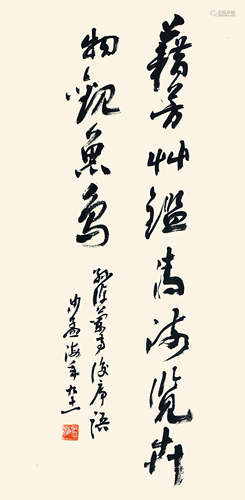 藉芳艸鑑清流覽卉
物觀魚鳥
孫綽蘭亭後序語
沙孟海年九十一